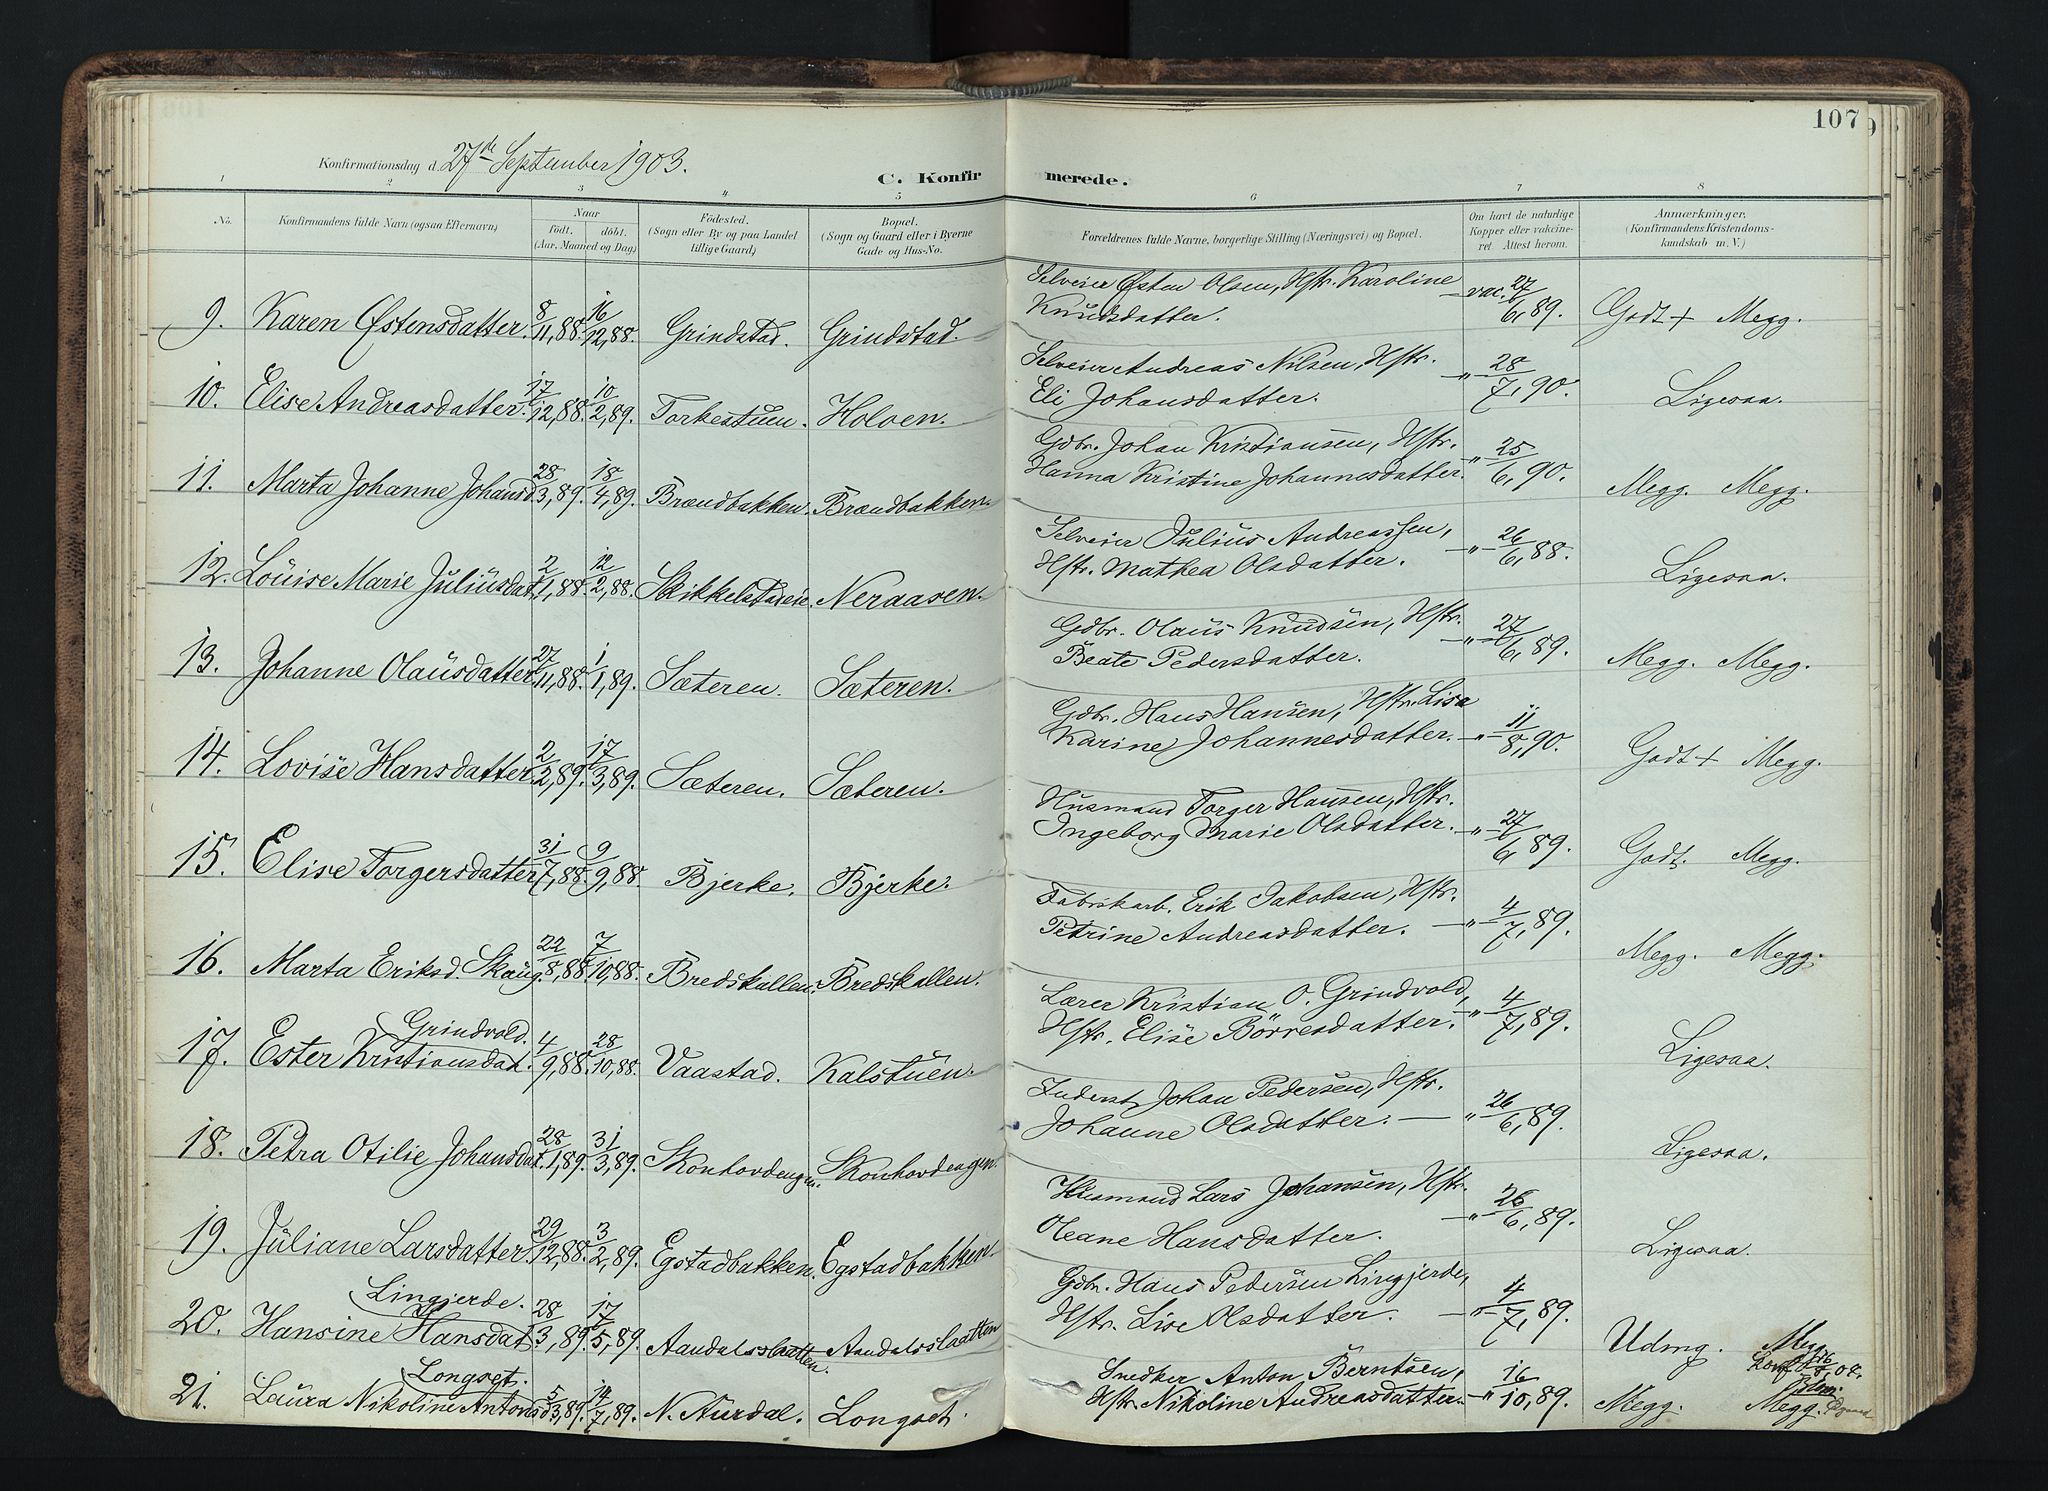 107
Konfirmationsdag d. 27de September 1903.
C. Konfirmerede.
1 2 3 4 5 6 7 8
No. Konfirmandens fulde Navn (ogsaa Efternavn) Naar født. døbt. (Aar, Maaned og Dag) Fødested. (Sogn eller By og paa Landet tillige Gaard) Bopæl. (Sogn og Gaard eller i Byerne Gade og Hus-No. Forældrenes fulde Navne, borgerlige Stilling (Næringsvei) og Bopæl. Om havt de naturlige Kopper eller vakcineret. Attest herom. Anmærkninger, (Konfirmandens Kristendomskundskab m. V.)
9. Karen Østensdatter. 8/11,88. 16/12,88. Grindstad. Grindstad. Selveier Østen Olsen, Hstr. Karoline Knudsdatter. vac. 27/6,89. Godt + Megg.
10. Elise Andreasdatter. 17/12,88. 10/2,89. Torkestuen. Holoen. Selveier Andreas Nilsen, Hstr. Eli Johansdatter. —"— 28/7,90. Ligesaa.
11. Marta Johanne Johansd. 28/3,89. 18/4,89. Brændbakken. Brændbakken. Gdbr. Johan Kristiansen, Hstr. Hanna Kristine Johannesdatter. " 25/6,90. Megg. Megg.
12. Louise Marie Juliusdat. 2/1,88. 12/2,88. Skikkelstadeie. Neraasen. Selveier Julius Andreassen, Hstr. Mathea Olsdatter. —"— 26/6,88. Ligesaa.
13. Johanne Olausdatter. 27/11,88. 1/1,89. Sæteren. Sæteren. Gdbr. Olaus Knudsen, Hstr. Beate Pedersdatter. —"— 27/6,89. Megg. Megg.
14. Lovise Hansdatter. 2/2,89. 17/3,89. Sæteren. Sæteren. Gdbr. Hans Hansen, Hstr. Lisa Karine Johannesdatter. —"— 11/8,90. Godt + Megg.
15. Elise Torgersdatter 31/7,88. 9/9,88. Bjerke. Bjerke. Husmand Torger Hansen, Hstr. Ingeborg Marie Olsdatter. —"— 27/6,89. Godt. Megg.
16. Marta Eriksd. Skaug. 22/8,88. 7/10,88. Bredskallen. Bredskallen. Fabrikarb. Erik Jakobsen, Hstr. Petrine Andreasdatter. —"— 4/7,89. Megg. Megg.
Grindvold.
17. Ester Kristiansdat. 4/9,88. 28/10,88. Vaastad. Kalstuen. Lærer Kristian O. Grindvold, Hstr. Elise Börresdatter. —"— 4/7,89. Ligesaa.
18. Petra Otilie Johansdat. 28/1,89. 31/3,89. Skonhovdengen. Skonhovdengen. Inderst Johan Pedersen, Hstr. Johanne Olsdatter. — " 26/6,89. Ligesaa.
19. Juliane Larsdatter. 29/12,88. 3/2,89. Egstadbakken. Egstadbakken. Husmand Lars Johansen, Hstr. Oleane Hansdatter. —"— 26/6,89. Ligesaa.
Lingjerde.
20. Hansine Hansdat. 28/3,89. 17/5,89. Aandalsslaatten. Aandalsslaatten Gdbr. Hans Pedersen Lingjerde, Hstr. Lise Olsdatter. —"— 4/7,89. Udmg. Megg.
Longset.
21. Laura Nikoline Antonsd. 5/3,89. 14/7,89. N. Aurdal. Longset. Snedker Anton Berntsen, Hstr. Nikoline Andreasdatter. —"— 16/10,89. Megg. Megg.